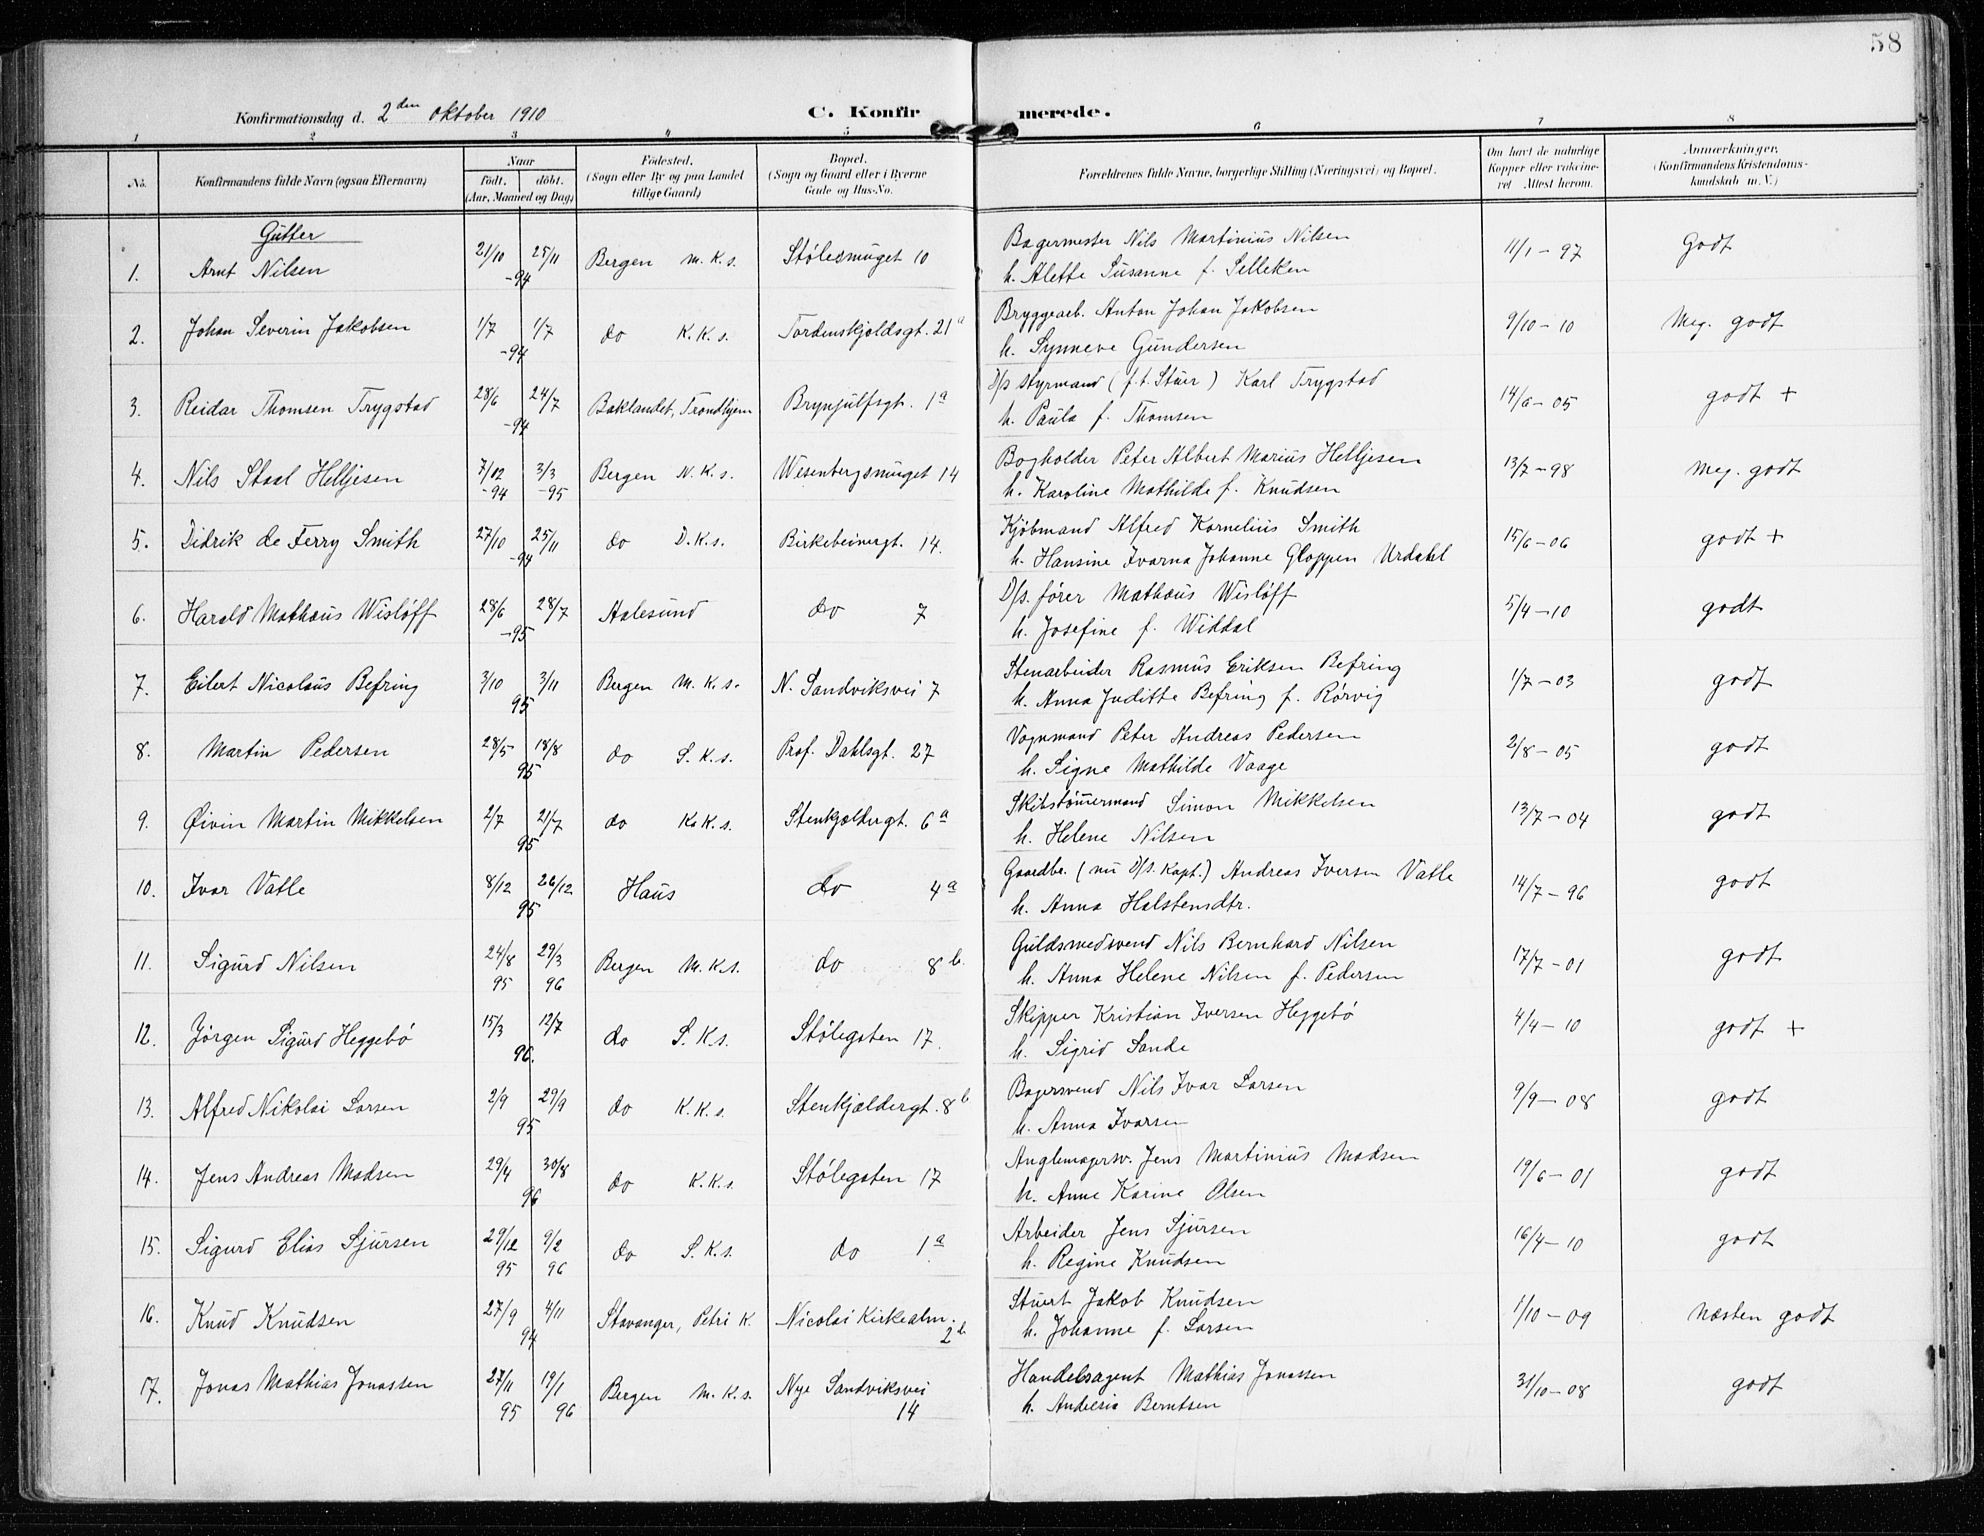 58
Konfirmationsdag d. 2den Oktober 1910 C. Konfirmerede.
1 2 3 4 5 6 7 8
No. Konfirmandens fulde Navn (ogsaa Efternavn) Naar født. døbt. (Aar, Maaned og Dag) Födested. (Sogn eller By og paa Landet tillige Gaard) Bopæl. (Sogn og Gaard eller i Byerne Gade og Hus-No. Forældrenes fulde Navne, borgerlige Stilling (Næringsvei) og Bopæl. Om havt de naturlige Kopper eller vakcineret Attest herom. Anmærkninger. (Konfirmandens Kristendomskundskab m. V.)
Gutter
1. Arnt Nilsen 21/10 25/11 -94 Bergen M. K. s. Stølesmuget 10 Bagermester Nils Martinius Nilsen 11/1 - 97 Godt
h. Alette Susanne f. Selleken
2. Johan Severin Jakobsen 1/7 1/7 -94 do K. K. s. Tordenskjoldsgt. 21a Bryggearb. Anton Johan Jakobsen 9/10 - 10 Meg. godt
h. Synneve Gundersen
3. Reidar Thomsen Trygstad 28/6 24/7 -94 Baklandet, Trondhjem Brynjulfsgt. 1a D/s styrmand (f. t. Stuer) Karl Trygstad 14/6 - 05 godt +
h. Paula f. Thomsen
4. Nils Staal Helljesen 7/12 -94 3/3 -95 Bergen N. K. s. Wesenbergsmuget 14 Bogholder Peter Albert Marius Helljesen 13/7 - 98 Meg. godt
h. Karoline Mathilde f. Knudsen
5. Didrik de Ferry Smith 27/10 25/11 -94 do D. K. s. Birkebeinergt. 14. Kjøbmand Alfred Kornelius Smith 15/6 - 06 godt +
h. Hansine Ivarna Johanne Gloppen Urdahl
6. Harald Mathæus Wisløff 28/6 28/7 -95 Aalesund do 7 D/s. fører Mathæus Wisløff 5/4 - 10 godt
h. Josefine f. Widdal
7. Eilert Nicolaus Befring 3/10 3/11 95 Bergen M. K. s. N. Sandviksvei 7 Stenarbeider Rasmus Eriksen Befring 1/7 - 03 godt
h. Anna Juditte Befring f. Rørvig
8. Martin Pedersen 28/5 18/8 95 do S. K. s. Prof. Dahlsgt. 27 Vognmand Peter Andreas Pedersen 2/8 - 05 godt
h. Signe Mathilde Vaage
9. Øivin Martin Mikkelsen 2/7 21/7 95 do K. K. s. Stenkjeldergt. 6a Skibstømmermand Simon Mikkelsen 13/7 - 04 godt
h. Helene Nilsen
10. Ivar Vatle 8/12 26/12 95 Haus do 4a Gaardbr. (nu D/s. Kapt.) Andreas Iversen Vatle 14/7 - 96 godt
h. Anna Halstensdtr.
11. Sigurd Nilsen 24/8 95 29/3 96 Bergen M. K. s. do 8b. Guldsmedsvend Nils Bernhard Nilsen 17/7 - 01 godt
h. Anna Helene Nilsen f. Pedersen
12. Jørgen Sigurd Heggebø 15/3 12/7 96. do S. K. s. Stølegaten 17. Skipper Kristian Iversen Heggebø 4/4 - 10 godt +
h. Sigrid Sande
13. Alfred Nikolai Larsen 2/9 29/9 95 do K. K. s. Stenkjældergt. 8b Bagersvend Nils Ivar Larsen 9/9 - 08 godt
h. Anna Ivarsen
14. Jens Andreas Madsen 29/4 30/8 96 do K. K. s. Stølegaten 17 Anglemagersv. Jens Martinius Madsen 19/6 - 01 godt
h. Anne Karine Olsen
15. Sigurd Elias Sjursen 29/12 95 9/2 96 do S. K. s. do 1a Arbeider Jens Sjursen 16/4 - 10 godt
h. Regine Knudsen
16. Knud Knudsen 27/9 4/11 94 Stavanger, Petri K. Nicolai Kirkealm. 2b Stuert Jakob Knudsen 1/10 - 09 Næsten godt
h. Johanne f. Larsen
17. Jonas Mathias Jonassen 27/11 95 19/1 96 Bergen M. K. s. Nye Sandviksvei 14 Handelsagent Mathias Jonassen 31/10 - 08 godt
h. Andresia Berntsen